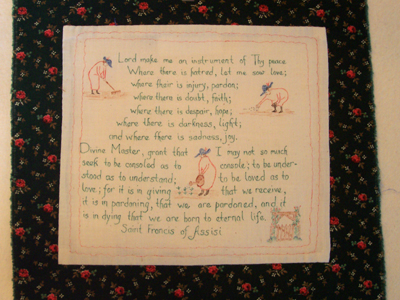 Lord make me an instrument of Thy peace
Where there is hatred, let me sow love;
where their is injury, pardon;
where there is doubt, faith;
where there is despair, hope;
where there is darkness, light;
and where there is sadness, joy.
Divine Master, grant that I may not so much
seek to be consoled as to console; to be under-
stood as to understand; to be loved as to
love; for it is in giving that we receive,
it is in pardoning, that we are pardoned, and it
is in dying that we are born to eternal life.
Saint Francis of Assisi